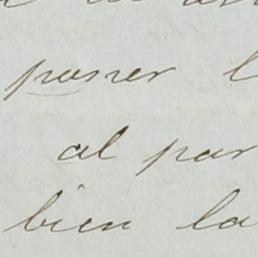 poner l
al par
bien la